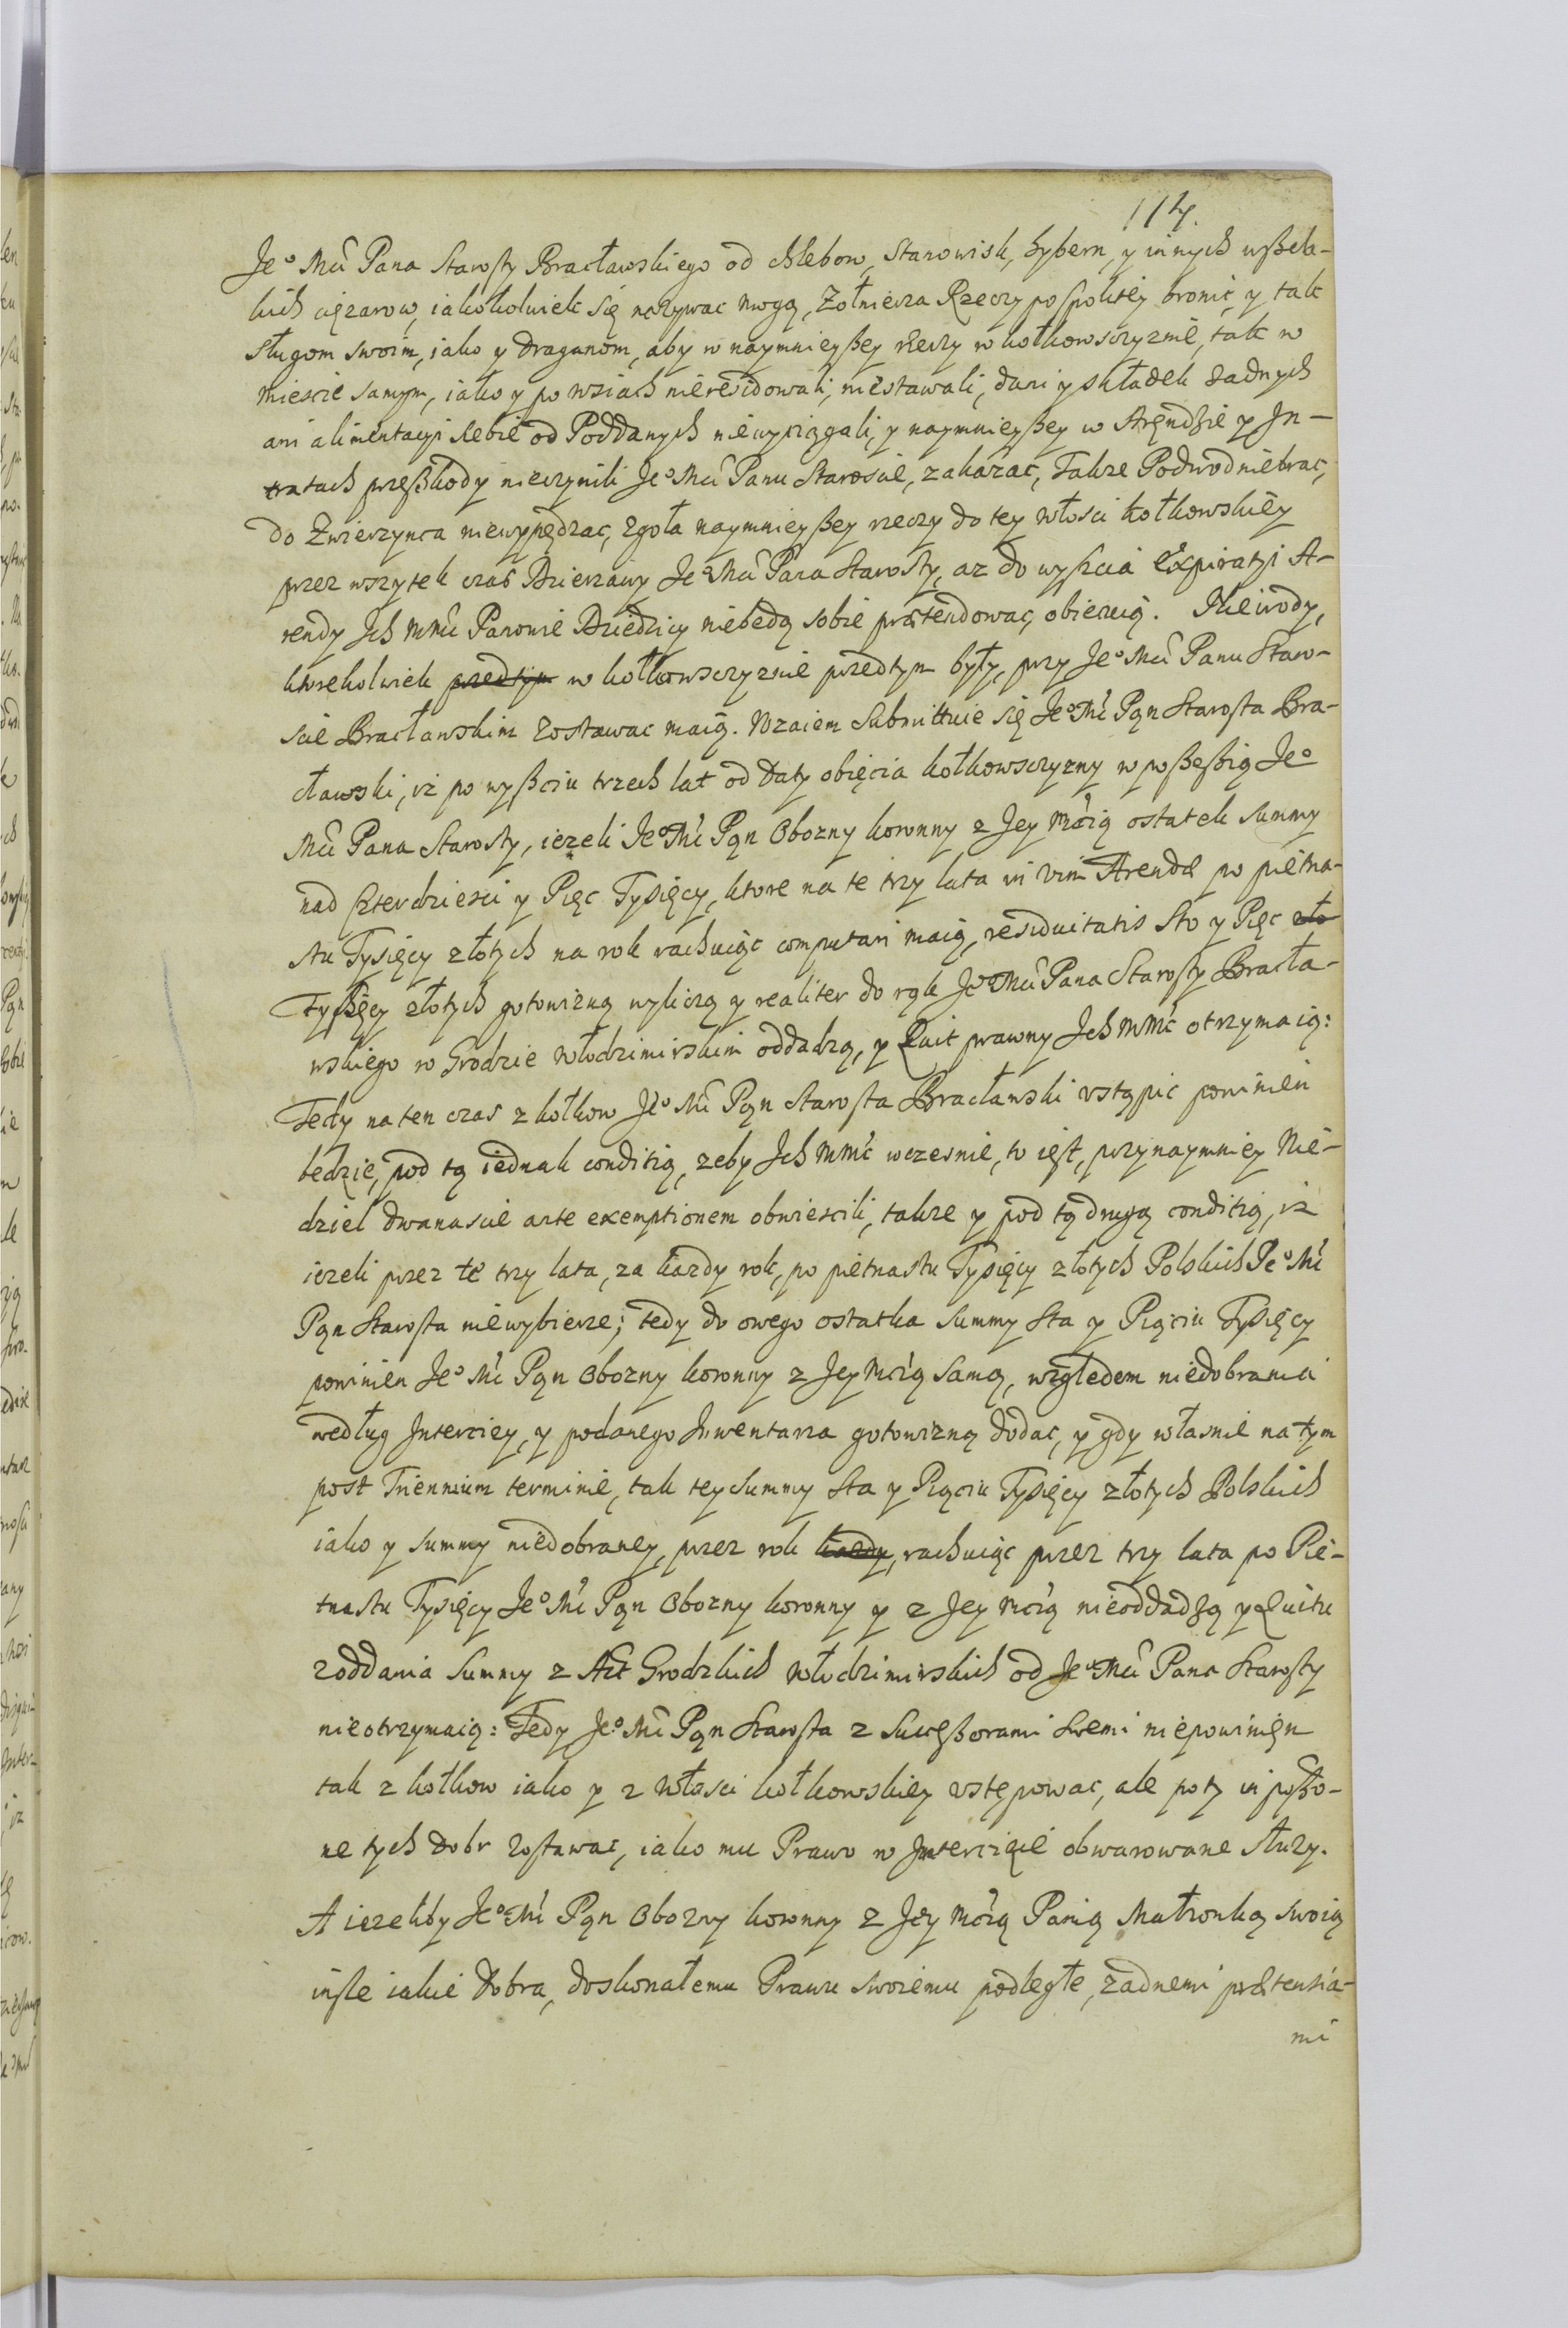 114.
Jeo Mci Pana Starosty Bracławskiego od chlebow, Stanowisk, hybern, y innych wszela-
kich cięzarow, iakożkolwiek się nazywac mogą, Zołnierza Rzeczypospolitey bronic, y tak
sługom swoim, iako y draganom, aby w naymnieyszey rzeczy w kołkowszczyznie, tak w
miescie samym, iako y po wsiach nieresidowali, niestawali, dani y składek zadnych
ani alimentacyi sobie od Poddanych niewyciągali, y naymnieyszey w Arędzie y In-
tratach przeszkody nieczynili Jeo Mci Panu Staroscie, zakazac, Takze Podwod niebrac,
do Zwierzynca niewypędzac, zgoła naymnieyszey rzeczy do tey włosci kołkowskiey
przez wszytek czas Dzierzawy Jeo Mci Pana Starosty, az do wyszcia Expiratyi A-
rendy Ich MMci Panowie Dziedzicy niebędą sobie prætendowac, obiecuią. Niewody,
ktorekolwiek przedtym w kołkowszczyznie przedtym były, przy Jeo Mci Panu Staro-
scie Bracławskim zostawac maią. Wzaiem Submittuie się Jeo Mc Pąn Starosta Bra-
cławski, iz po wyszciu trzech lat od daty obięcia kołkowszczyzny w possessią Jeo
Mci Pana Starosty, iezeli Jeo Mc Pąn Obozny koronny z Jey Mcią ostatek summy
nad Czterdziesci y Pięc Tysięcy, ktore na te trzy lata in vim Arendæ po piętna-
stu Tysięcy złotych na rok rachuiąc computari maią, residuitatis Sto y Pięc zło
Tysięcy złotych gotowizną wyliczą y realiter do rąk Jeo Mci Pana Starosty Bracła-
wskiego w Grodzie Włodzimirskim oddadzą, y Quit prawny Ich MMc otrzymaią:
Tedy na ten czas z kołkow Jeo Mc Pąn Starosta Bracławski ustąpic powinien
bedzie, pod tą iednak conditią, zeby Ich MMc wczesnie, to iest, przynaymniey Nie-
dziel dwanascie ante exemptionem obwiescili, takze y pod tą drugą conditią, iz
iezeli przez te trzy lata, za kazdy rok, po piętnastu Tysięcy złotych Polskich Jeo Mc
Pąn Starosta niewybierze; tedy do owego ostatka summy Sta y Pięciu Tysięcy
powinien Jeo Mc Pąn Obozny koronny z Jey Mcią Samą, względem niedobrania
według Intercizy, y podanego Inwentarza gotowizną dodac, y gdy własnie na tym
post Triennium terminie, tak tey Summy Sta y Pięciu Tysięcy złotych Polskich
iako y summy niedobraney, przez rok kazdy, rachuiąc przez trzy lata po Pię-
tnastu Tysięcy Jeo Mc Pąn Obozny koronny y z Jey Mcią nieoddadzą y Quitu
z oddania Summy z Act Grodzkich Włodzimirskich od Jeo Mci Pana Starosty
nieotrzymaią: Tedy Jeo Mc Pąn Starosta z Sukcessorami Swemi niepowinięn
tak z kołkow iako y z Włosci kołkowskiey ustępowac, ale poty in posso-
ne tych dobr zostawac, iako mu Prawo w Intercizie obwarowane służy.
A iezeliby Jeo Mc Pąn Obozny koronny z Jey Mcią Panią Małzonką swoią
insze iakie Dobra, doskonałemu Prawu swoiemu podległe, zadnemi prætensia-
mi